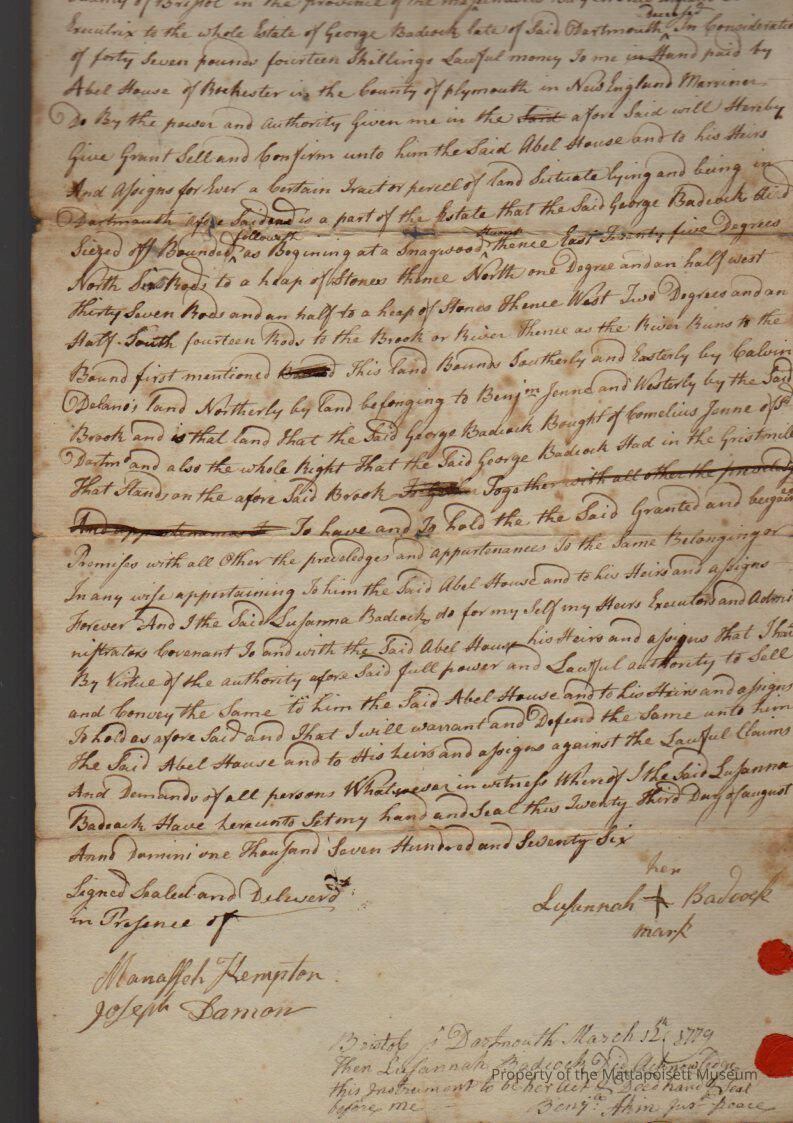 County of Bristol in the province of the
Executrix to the whole Estate of George Badcock late of Said Dartmouth Deceased In Consideration
of forty Seven pounds fourteen Shillings Lawful money To me in Hand paid by
Abel House of Rochester in the County of plymouth in New England Marriner
Do By the power and Authority Given me in the said afore Said will Hereby
Give Grant Sell and Confirm unto him the Said Abel House and to his Heirs
And Assigns for Ever a Certain Tract or percell of land Situate lying and being in
Dartmouth afore Said and is a part of the Estate that the Said George Badcock died
Siezed off Bounded followeth as Begining at a Snagwood Stump thence East Twenty five Degrees
North Six Rods to a heap of Stones thence North one Degree and an half west
thirty Seven Rods and an half to a heap of Stones Thence West Two Degrees and an
Half South fourteen Rods to the Brook or River Thence as the River Runs to the
Bound first mentioned This land Bounds Southerly and Easterly by Calvin
Delano's land Northerly by land belonging to Benjmn Jenne and Westerly by the Said
Brook and is that land That the Said George Badcock Bought of Cornelius Jenne of Sd
Dartmo and also the whole Right That the Said George Badcock Had in the Gristmill
That Stands on the afore Said Brook Together with all other the priveledges
And appurtenances To have and To hold the the Said Granted and bergained
Premises with all Other the preveledges and appartenances To the Same Belonging or
In any wise appertaining To him the Said Abel House and to his Heirs and assigns
Forever And I the Said Susanna Badcock do for my Self my Heirs Executors and Admi
nistrators Covenant To and with the Said Abel House his Heirs and assigns That I have
By Virtue of the authority afore Said full power and Lawful authority to Sell
and Convey the Same to him the Said Abel House and to his Heirs and assigns
To hold as afore Said and That I will warrant and Defend the Same unto him
the Said Abel House and to His heirs and assigns against the Lawful Claims
And Demands of all persons Whatsoever in witness Whereof I the Said Susanna
Badcock Have hereunto Set my hand and Seal this Twenty Third Day of august
Anno Domini one Thousand Seven Hundred and Seventy Six
Signed Sealed and Deliverd
in Presence of
her
Susannah + Badcock
mark
Manasseh Kempton
Joseph Damon
Bristol Dartmouth March 12th 1779
Then Susannah Badcock Did Acknowledge
this Instrument to be her act & Deed hand & Seal
before me Benja Akin Jus peace
Property of the Mattapoisett Museum